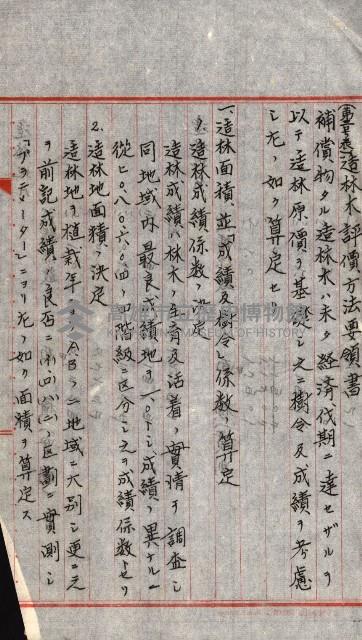 造林木評價方法要領書
補償物タル造林木ハ未ダ経済伐期ニ達セザルヲ
以テ造林原價ヲ基礎トシ之ニ樹令及成績ヲ考慮
シ左ノ如ク算定セリ
一、造林面積並ニ成績及樹令ノ係数ノ算定
1. 造林成績係数ノ決定
造林成績ハ林木ノ生育及活着ノ實情ヲ調査シ
同地域内最良成績地ヲ一.〇トシ成績ノ異ナルニ
從ヒ〇.八〇.六〇.四ノ四階級ニ区分シ之ヲ成績係数トセリ
2. 造林地面積ノ決定
造林地ヲ植栽年ノA.B.ノ二地域ニ大別シ更ニ之
ヲ前記成績ノ良否ニ区劃シ實測シ
「プラニメーター」ニヨリ左ノ如ク面積ヲ算定ス
高雄市立歷史博物館